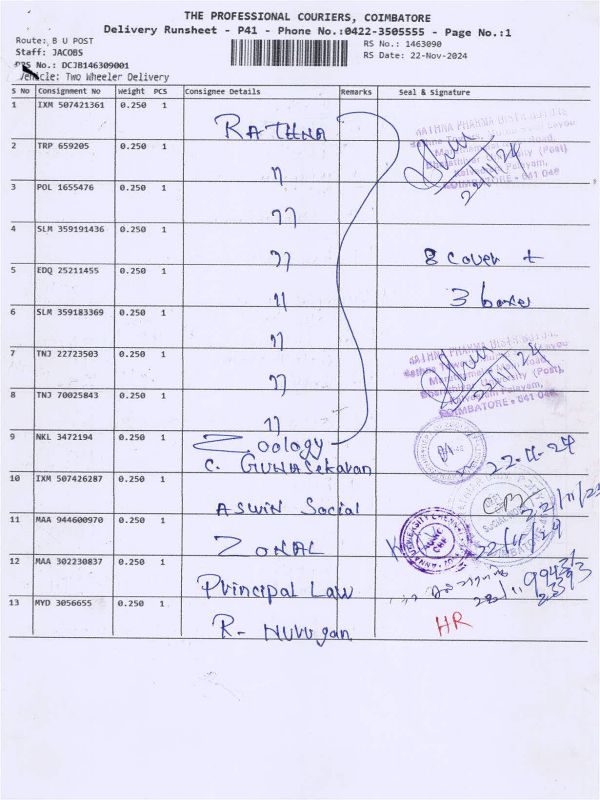 THE PROFESSIONAL COURIERS, COIMBATORE
Delivery Runsheet - P41 - Phone No.:0422-3505555 - Page No.:1
Route: B U POST
RS No.: 1463090
Staff: JACOBS
RS Date: 22-Nov-2024
DRS No.: DCJB146309001
Vehicle: Two Wheeler Delivery
S No Consignment No Weight PCS Consignee Details Remarks Seal & Signature
1 IXM 507421361 0.250 1 RATHNA
2 TRP 659205 0.250 1 ''
3 POL 1655476 0.250 1 ''
4 SLM 359191436 0.250 1 '' 8 cover +
5 EDQ 25211455 0.250 1 '' 3 boxes
6 SLM 359183369 0.250 1 ''
7 TNJ 22723503 0.250 1 ''
8 TNJ 70025843 0.250 1 ''
9 NKL 3472194 0.250 1 Zoology
C. GUNASekaran 22-11-24
10 IXM 507426287 0.250 1 ASWIN Social
11 MAA 944600970 0.250 1 ZONAL
12 MAA 302230837 0.250 1 Principal Law
13 MYD 3056655 0.250 1 R- Murugan HR
RATHNA PHARMA DISTRIBUTORS
COIMBATORE - 641 046
22/11/24
RATHNA PHARMA DISTRIBUTORS
COIMBATORE - 641 046
22/11/24